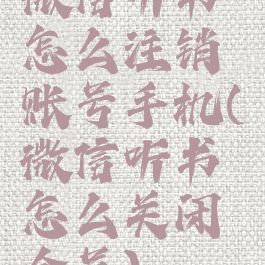 微信听书
怎么注销
账号手机(
微信听书
怎么关闭